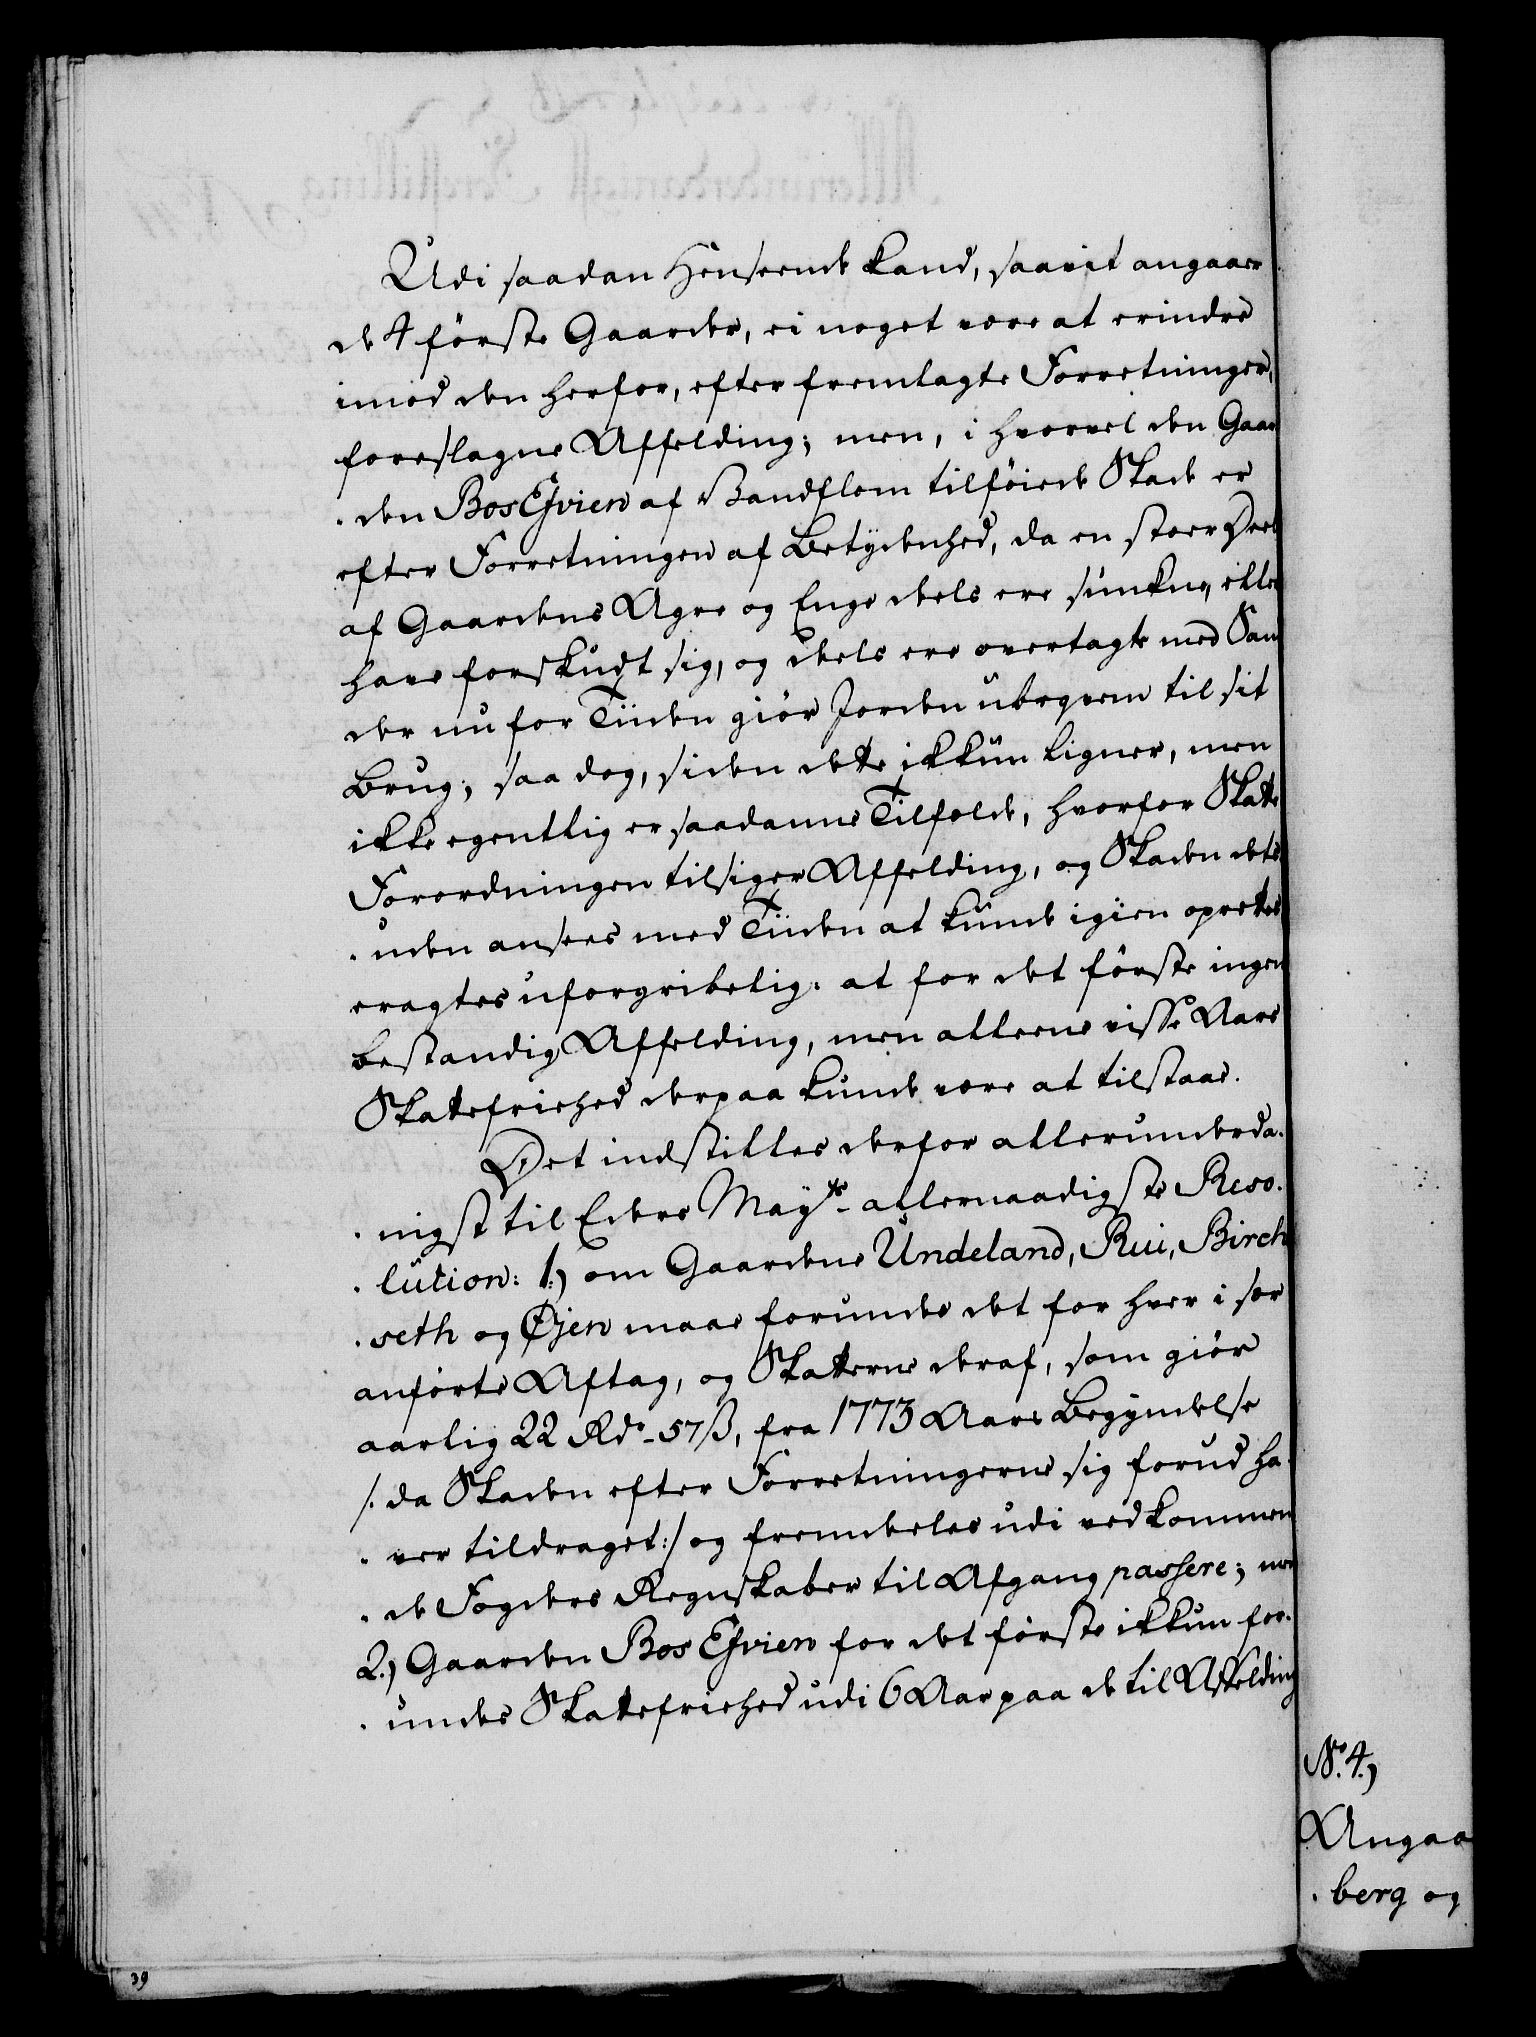 Udi saadan Henseende kand, saavit angaaer
de 4 förste Gaarder, ei noget være at erindre
imod den herfor, efter fremlagte Forretninger,
foreslagne Affelding; men, i hvorvel den Gaar
. den Bos Esvien af Vandflom tilföiede Skade er
efter Forretningen af Betydenhed, da en stoer Deel
af Gaardens Agre og Enge deels ere sunkne, eller
have forskudt sig, og deels ere overtagte med San
der nu for Tiiden giör Jorden ubeqvem til sit
Brug; saa dog, siden dette ikkun ligner, men
ikke egentlig er saadanne Tilfelde, hvorfor Skatte
Forordningen tilsiger Affelding, og Skaden des
. uden ansees med Tiiden at kunde igien oprettes
eragtes uforgribelig: at for det förste ingen
bestandig Affelding, men alleene visse Aars
Skattefriehed derpaa kunde være at tilstaae.
Det indstilles derfor allerunderda.
. nigst til Eders Mayts allernaadigste Reso.
. lution: 1.) om Gaardene Undeland, Rui, Birch
. seth og Øjen maae forundes det for hver i sær
anförte Aftag, og Skatterne deraf, som giör
aarlig 22 Rd. 57 ß, fra 1773 Aars Begyndelse
/: da Skaden efter Forretningerne sig forud ha.
. ver tildraget :/ og fremdeeles udi vedkommen
. de Fogders Regnskaber til Afgang passere; men
2.) Gaarden Bos Esvien for det förste ikkun for.
. undes Skattefriehed udi 6 Aar paa de til Affelding
No. 4.)
Angaa
. berg og
39